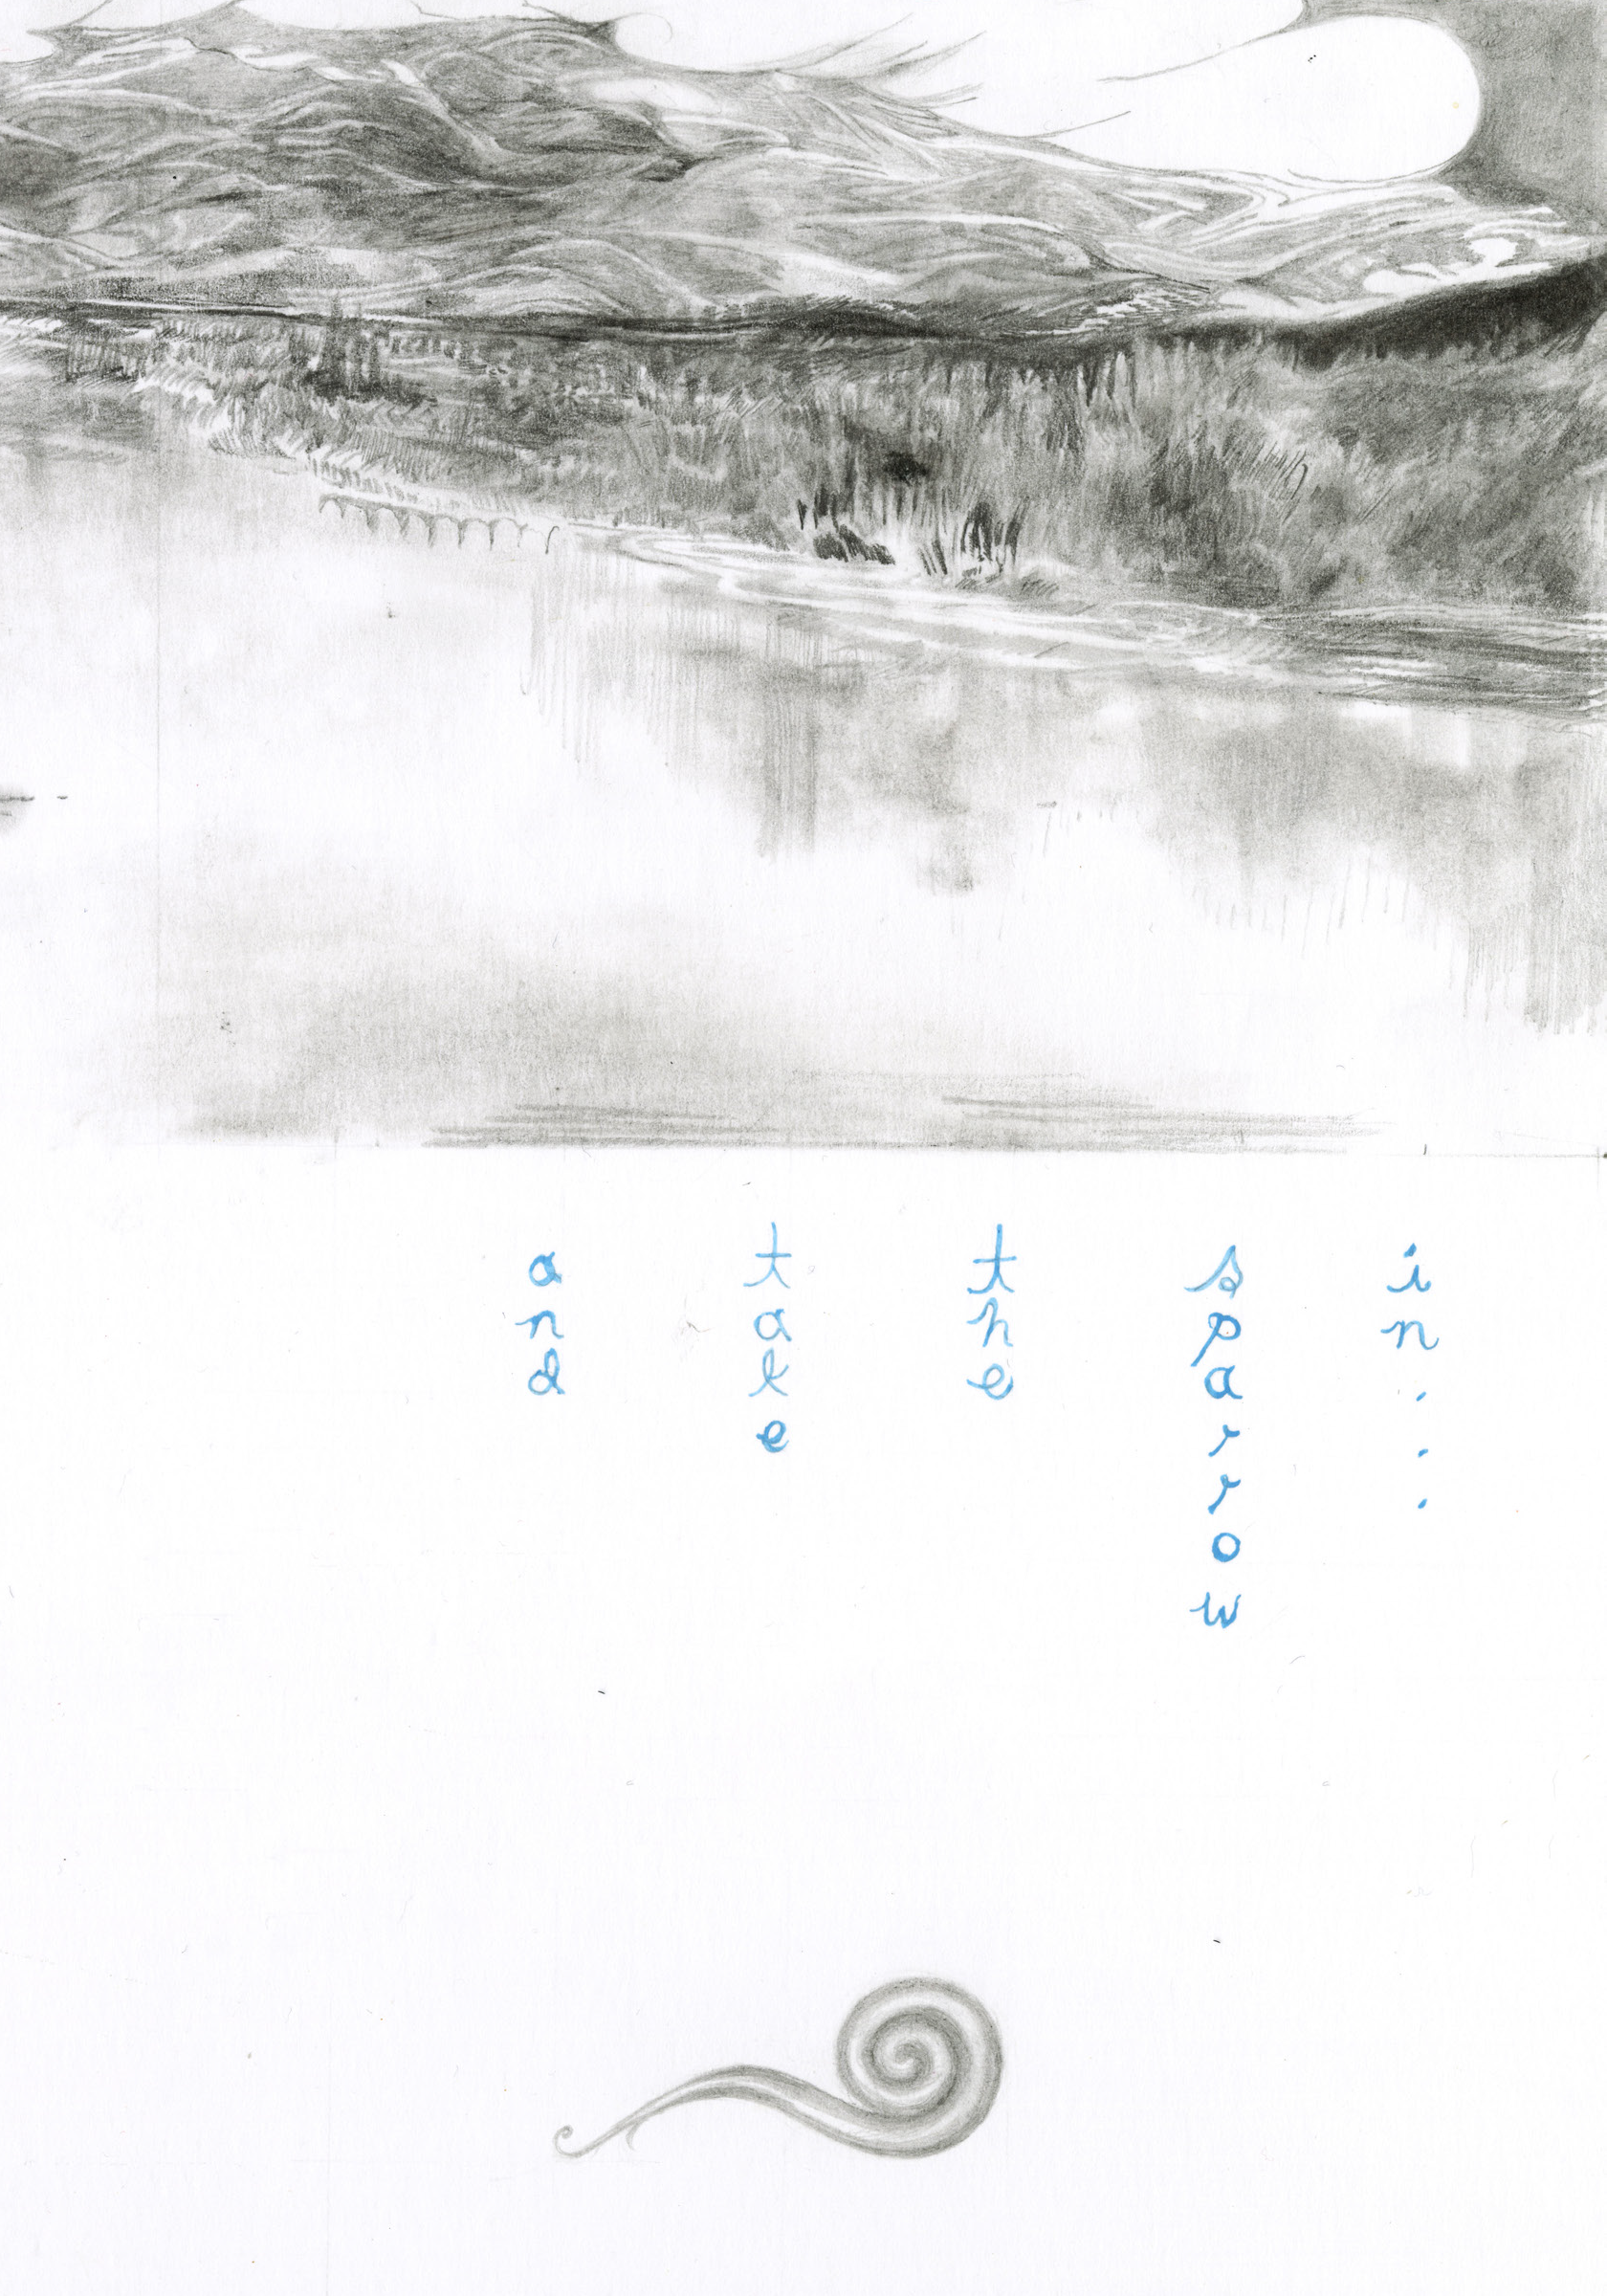 and
take
the
sparrow
in...